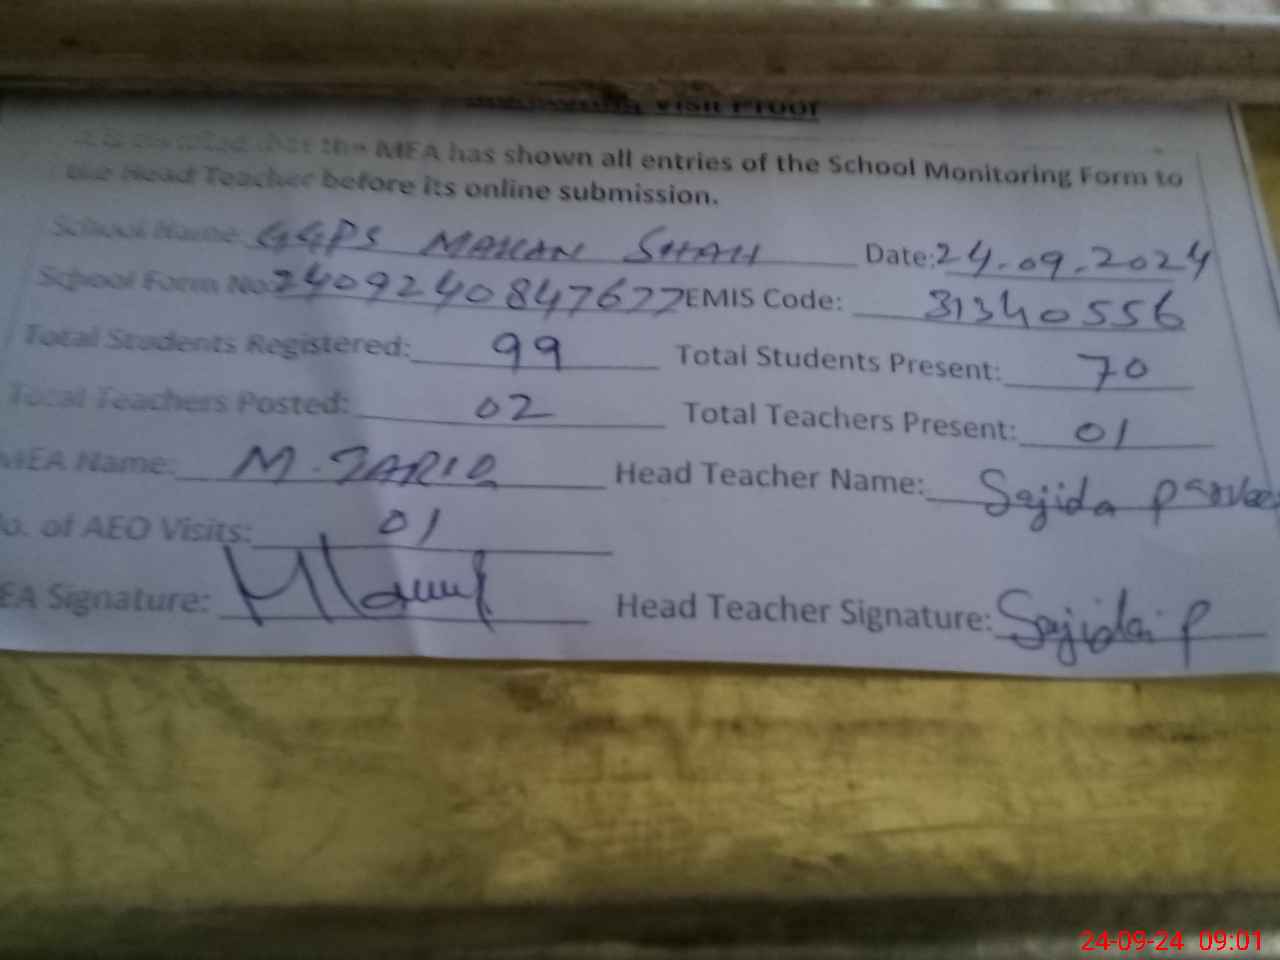 Visit Proof
It is certified that the MEA has shown all entries of the School Monitoring Form to
the Head Teacher before its online submission.
School Name: GGPS MAKAN SHAH Date: 24.09.2024
School Form No: 2409240847677 EMIS Code: 31340556
Total Students Registered: 99 Total Students Present: 70
Total Teachers Posted: 02 Total Teachers Present: 01
MEA Name: M. TARIQ Head Teacher Name: Sajida Parveen
No. of AEO Visits: 01
MEA Signature: Head Teacher Signature: Sajida P
24-09-24 09:01